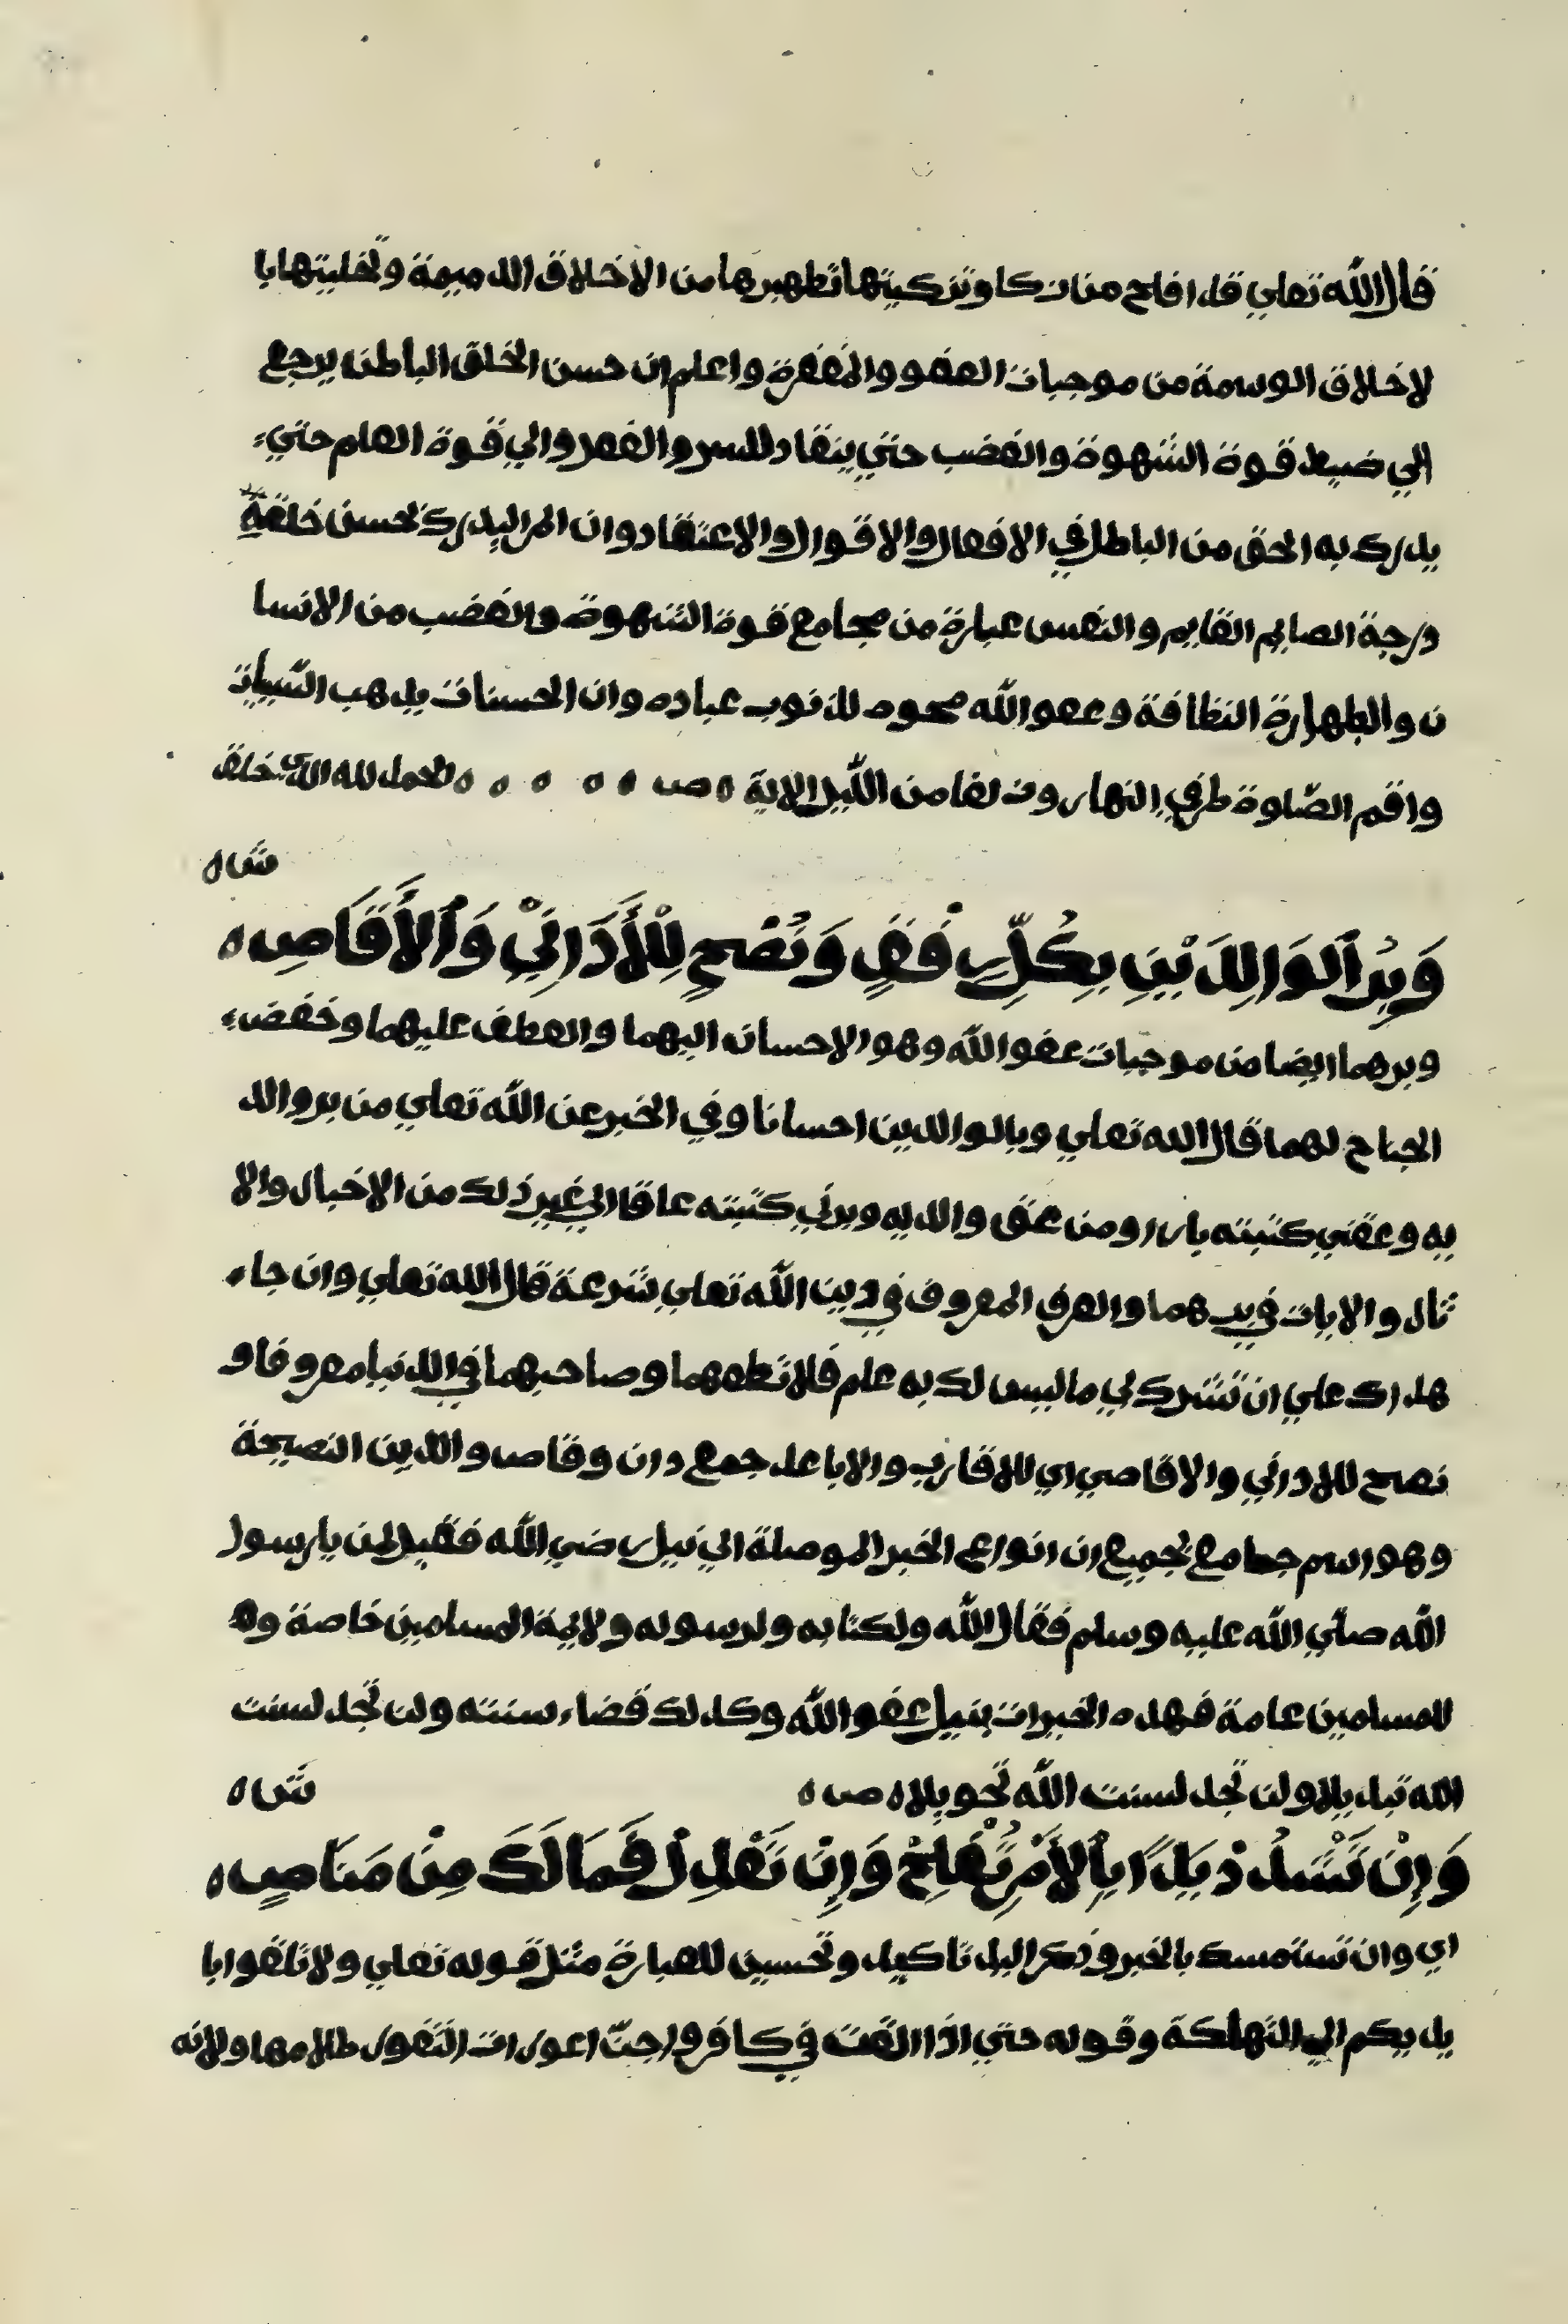 قال الله تعلي قد افلح من زكا وتزكيتها تطهيرها من الاخلاق الدميمة وتحليتها با
لاخلاق الوسمة من موجبات العفو والمغفرة واعلم ان حسن الخلق الباطن يرجع
الي ضبط قوة الشهوة والغضب حتي ينقاد للسر والغفر والي قوة العلم حتي
يدرك به الحق من الباطل في الافعال والاقوال والاعتقاد وان المر اليدرك بحسن خلقه
درجة الصايم القايم والنفس عبارة من مجامع قوة الشهوة والغضب من الانسا
ن والطهارة النظافة وعفو الله محوه للذنوب عباده وان الحسنات يدهب السّيأت
واقم الصّلوة طرفي النهار وزلفا من اللّيل الاية ه ص ه ه ه ه ه الحمد لله الذي خلق
ش ه
وَبِرُ ٱلوَالِدَيْنِ بِكُلِّ فَقٍ وَنُصْحٍ لِلْأَدَانِيْ وَٱلأَقَاصِ ه
وبرهما ايضا من موجبات عفو الله وهو الاحسان اليهما والعطف عليهما وخفض
الجناح لهما قال الله تعلي وبالوالدين احسانا وفي الخبر عن الله تعلي من بر والد
يه وعقني كتبته بارا ومن عق والديه وبرني كتبته عاقا الي غير ذلك من الاخبال والا
ثال والايات في برهما والعرف المعروف في دين الله تعلي شرعة قال الله تعلي وان جا
هداك علي ان تشرك لي ما ليس لك به علم فلا تطعهما وصاحبهما في الدنيا معروفا و
نصح للاداني والاقاصي اي للاقارب والاباعد جمع دان وقاص والدين النصيحة
وهو اسم جامع لجميع ان انواع الخير الموصلة الي نيل رضي الله فقيل لمن يا رسول
الله صلّي الله عليه وسلم فقال الله ولكتابه ولرسوله ولائمة المسلمين خاصة و
للمسلمين عامة فهده الخيرات ينيل عفو الله وكدلك قضاء سنته ولن تجد لسنت
الله تبديلا ولن تجد لسنت الله تحويلا ه ص ه ش ه
وَإِنْ تَشْدُدْ يَدًا بِٱلأَمْرِ تُفْلِحْ وَإِنْ تَعْدِلْ فَمَا لَكَ مِنْ مَنَاصٍ ه
اي وان تستمسك بالخير وذكر اليد تاكيد وتحسين للعبارة مثل قوله تعلي ولا تلقوا با
يديكم الي التهلكة وقوله حتي اذا القت في كافر واجنّ اعورات الثغور طلامها ولانه